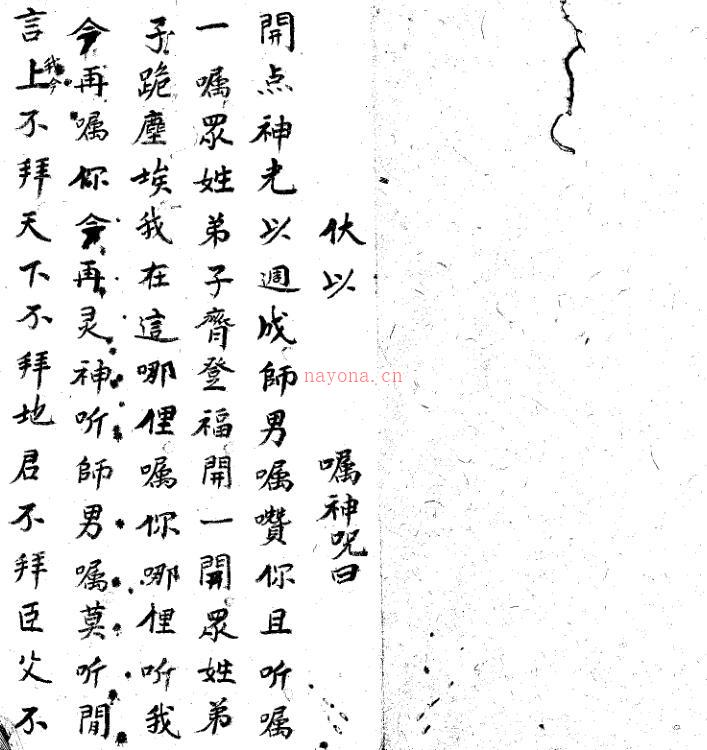 伏以 嘱神咒曰
開点神光以週成師男嘱讚你且听嘱
一嘱眾姓弟子齊登福開一開眾姓弟
子跪塵埃我在這哪俚嘱你哪俚听我
今再嘱你今再灵神听師男嘱莫听閒
言上我今不拜天下不拜地君不拜臣父不
nayona.cn